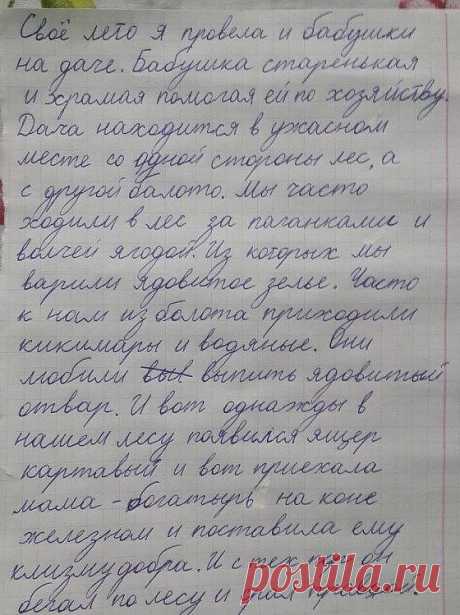 Своё лето я провела и бабушки
на даче. Бабушка старенькая
и храмая помогая ей по хозяйству.
Дача находится в ужасном
месте со одной стороны лес, а
с другой балото. Мы часто
ходили в лес за паганками и
волчей ягодой. Из которых мы
варили ядовитое зелье. Часто
к нам из болота приходили
кикимары и водяные. Они
любили выпить ядовитый
отвар. И вот однажды в
нашем лесу появился ящер
картавый и вот приехала
мама - богатырь на коне
железном и поставила ему
клизму добра. И с тех пор он
бегал по лесу и
postila.ru